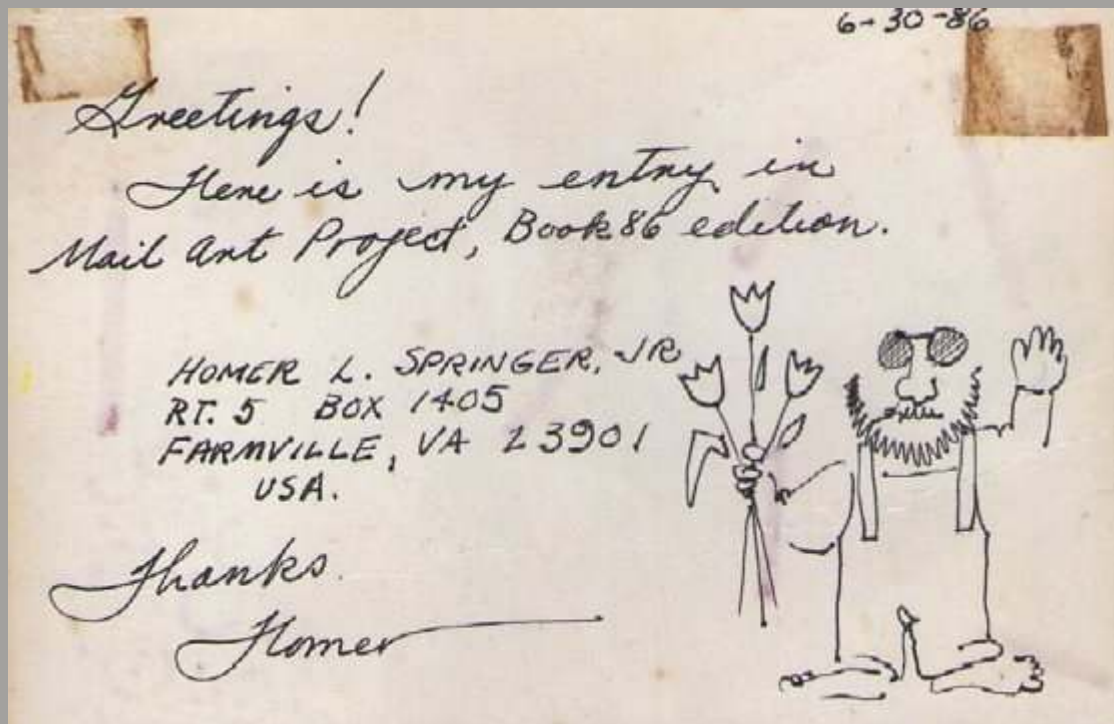 6-30-86
Greetings!
Here is my entry in
Mail Art Project, Book 86 edition.
HOMER L. SPRINGER, JR
RT. 5 BOX 1405
FARMVILLE, VA 23901
USA.
Thanks
Homer